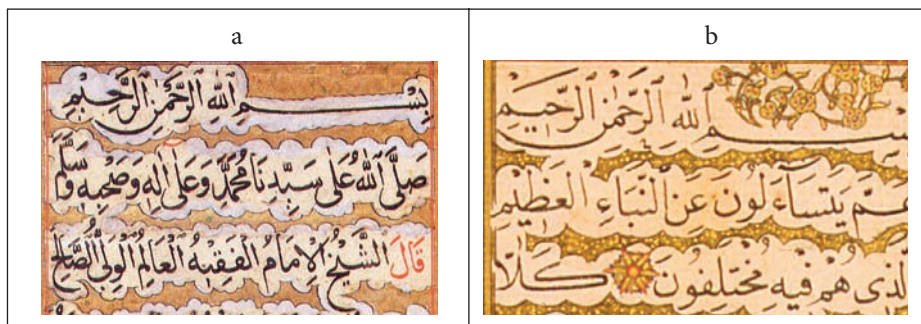 a
بِسْمِ اللهِ الرَّحْمٰنِ الرَّحِيْمِ
صَلَّى اللهُ عَلَى سَيِّدِنَا مُحَمَّدٍ وَعَلَى آلِهِ وَصَحْبِهِ وَسَلَّمَ
قَالَ الشَّيْخُ الْإِمَامُ الْفَقِيْهُ الْعَالِمُ الْوَلِيُّ الصَّالِحُ
b
بِسْمِ اللهِ الرَّحْمٰنِ الرَّحِيمِ
عَمَّ يَتَسَآءَلُونَ عَنِ النَّبَاءِ الْعَظِيمِ
الَّذِي هُمْ فِيهِ مُخْتَلِفُونَ كَلَّا